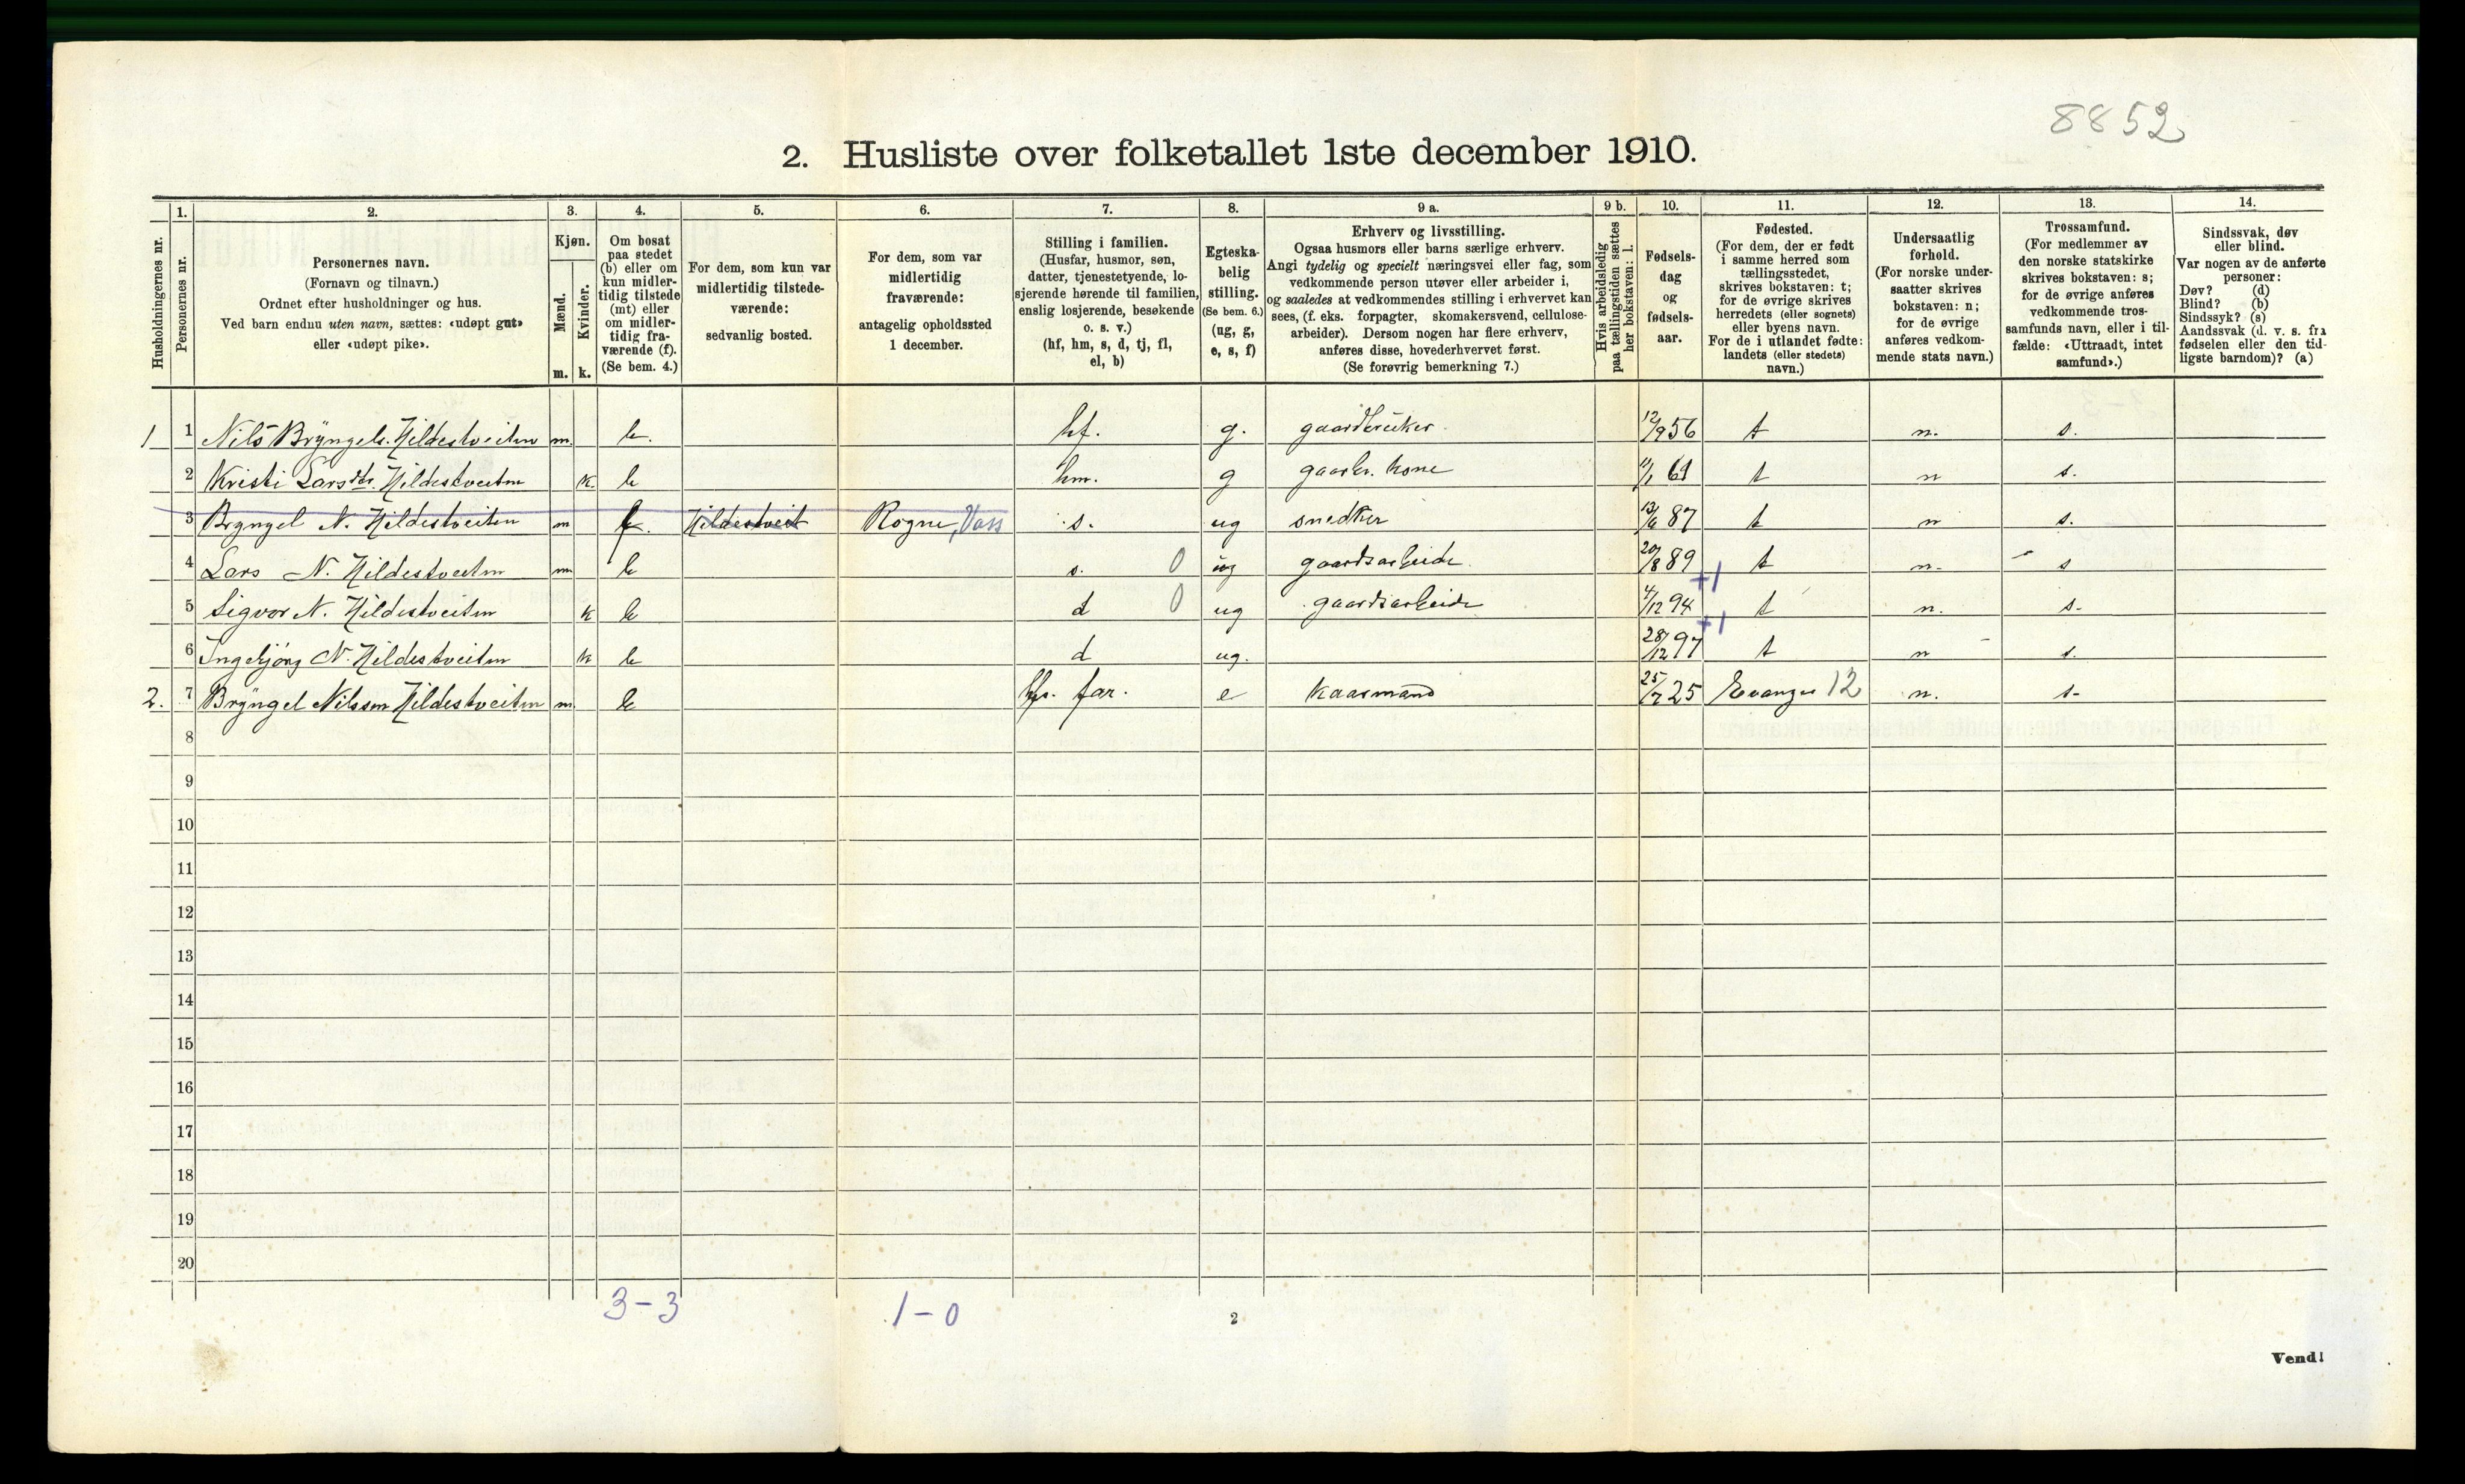 8852
2. Husliste over folketallet 1ste december 1910.
Husholdningernes nr.
1.
Personernes nr.
2.
Personernes navn.
(Fornavn og tilnavn.)
Ordnet efter husholdninger og hus.
Ved barn endnu uten navn, sættes: «udøpt gut»
eller «udøpt pike».
3.
Kjøn.
Mænd.
Kvinder.
m. k.
4.
Om bosat
paa stedet
(b) eller om
kun midler-
tidig tilstede
(mt) eller
om midler-
tidig fra-
værende (f).
(Se bem. 4.)
5.
For dem, som kun var
midlertidig tilstede-
værende:
sedvanlig bosted.
6.
For dem, som var
midlertidig
fraværende:
antagelig opholdssted
1 december.
7.
Stilling i familien.
(Husfar, husmor, søn,
datter, tjenestetyende, lo-
sjerende hørende til familien,
enslig losjerende, besøkende
o. s. v.)
(hf, hm, s, d, tj, fl,
el, b)
8.
Egteska-
belig
stilling.
(Se bem. 6.)
(ug, g,
e, s, f)
9 a.
Erhverv og livsstilling.
Ogsaa husmors eller barns særlige erhverv.
Angi tydelig og specielt næringsvei eller fag, som
vedkommende person utøver eller arbeider i,
og saaledes at vedkommendes stilling i erhvervet kan
sees, (f. eks. forpagter, skomakersvend, cellulose-
arbeider). Dersom nogen har flere erhverv,
anføres disse, hovederhvervet først.
(Se forøvrig bemerkning 7.)
9 b.
Hvis arbeidsledig
paa tællingstiden sættes
her bokstaven: l.
10.
Fødsels-
dag
og
fødsels-
aar.
11.
Fødested.
(For dem, der er født
i samme herred som
tællingsstedet,
skrives bokstaven: t;
for de øvrige skrives
herredets (eller sognets)
eller byens navn.
For de i utlandet fødte:
landets (eller stedets)
navn.)
12.
Undersaatlig
forhold.
(For norske under-
saatter skrives
bokstaven: n;
for de øvrige
anføres vedkom-
mende stats navn.)
13.
Trossamfund.
(For medlemmer av
den norske statskirke
skrives bokstaven: s;
for de øvrige anføres
vedkommende tros-
samfunds navn, eller i til-
fælde: «Uttraadt, intet
samfund».)
14.
Sindssvak, døv
eller blind.
Var nogen av de anførte
personer:
Døv? (d)
Blind? (b)
Sindssyk? (s)
Aandssvak (d. v. s. fra
fødselen eller den tid-
ligste barndom)? (a)
1 1 Nils Bryngels. Hildestveiten m. b. hf. g. gaardbruker 12/9 56 t n. s.
2 Kristi Larsdtr. Hildestveiten k. b hm. g gaarbr. kone 11/1 61 t n s.
3 Bryngel N. Hildestveiten m f. Hildestveit Rogne, Vass s. ug snedker 13/6 87 t n s.
4 Lars N. Hildestveiten m b s. 0 ug gaardsarbeide 20/8 89 t n. s
+1
5 Sigvor N. Hildestveiten k b d 0 ug gaardsarbeide 4/12 94 t n. s.
+1
6 Ingebjörg N. Hildestveiten k b d ug. 28/12 97 t n s.
2. 7 Bryngel Nilssen Hildestveiten m. b hfs. far. e kaarmand 25/7 25 Evanger 12 n. s-
8
9
10
11
12
13
14
15
16
17
18
19
20
3-3 1-0
2
Vend!